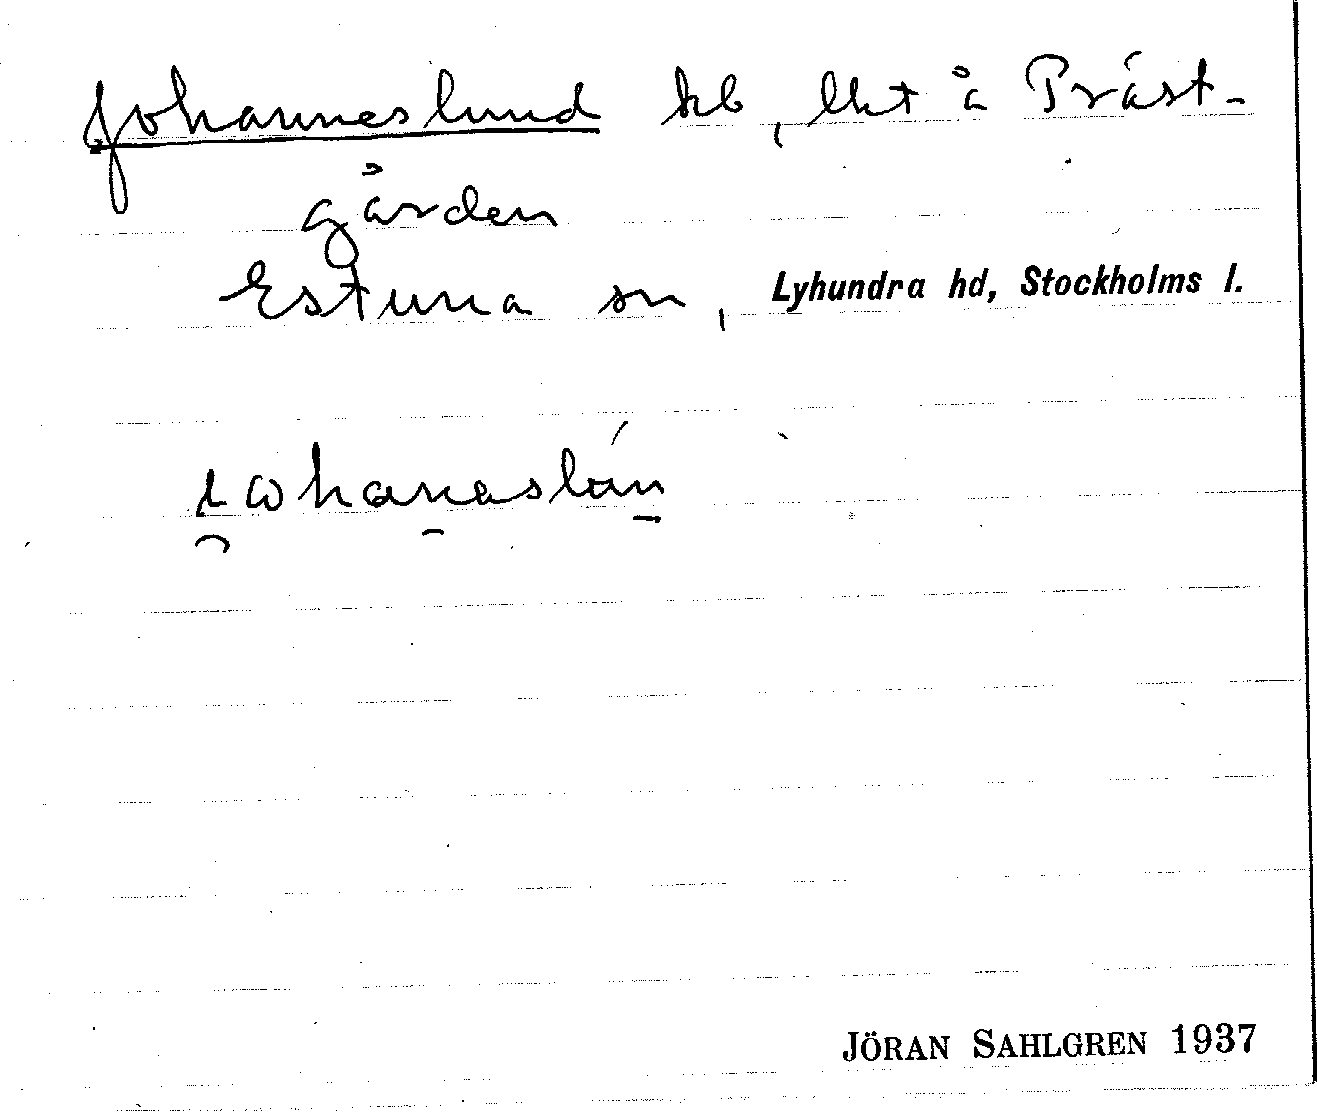 Johanneslund tıb, lht å Präst-
gården
Estuna sn, Lyhundra hd, Stockholms l.
ıωhanaslún
JÖRAN SAHLGREN 1937